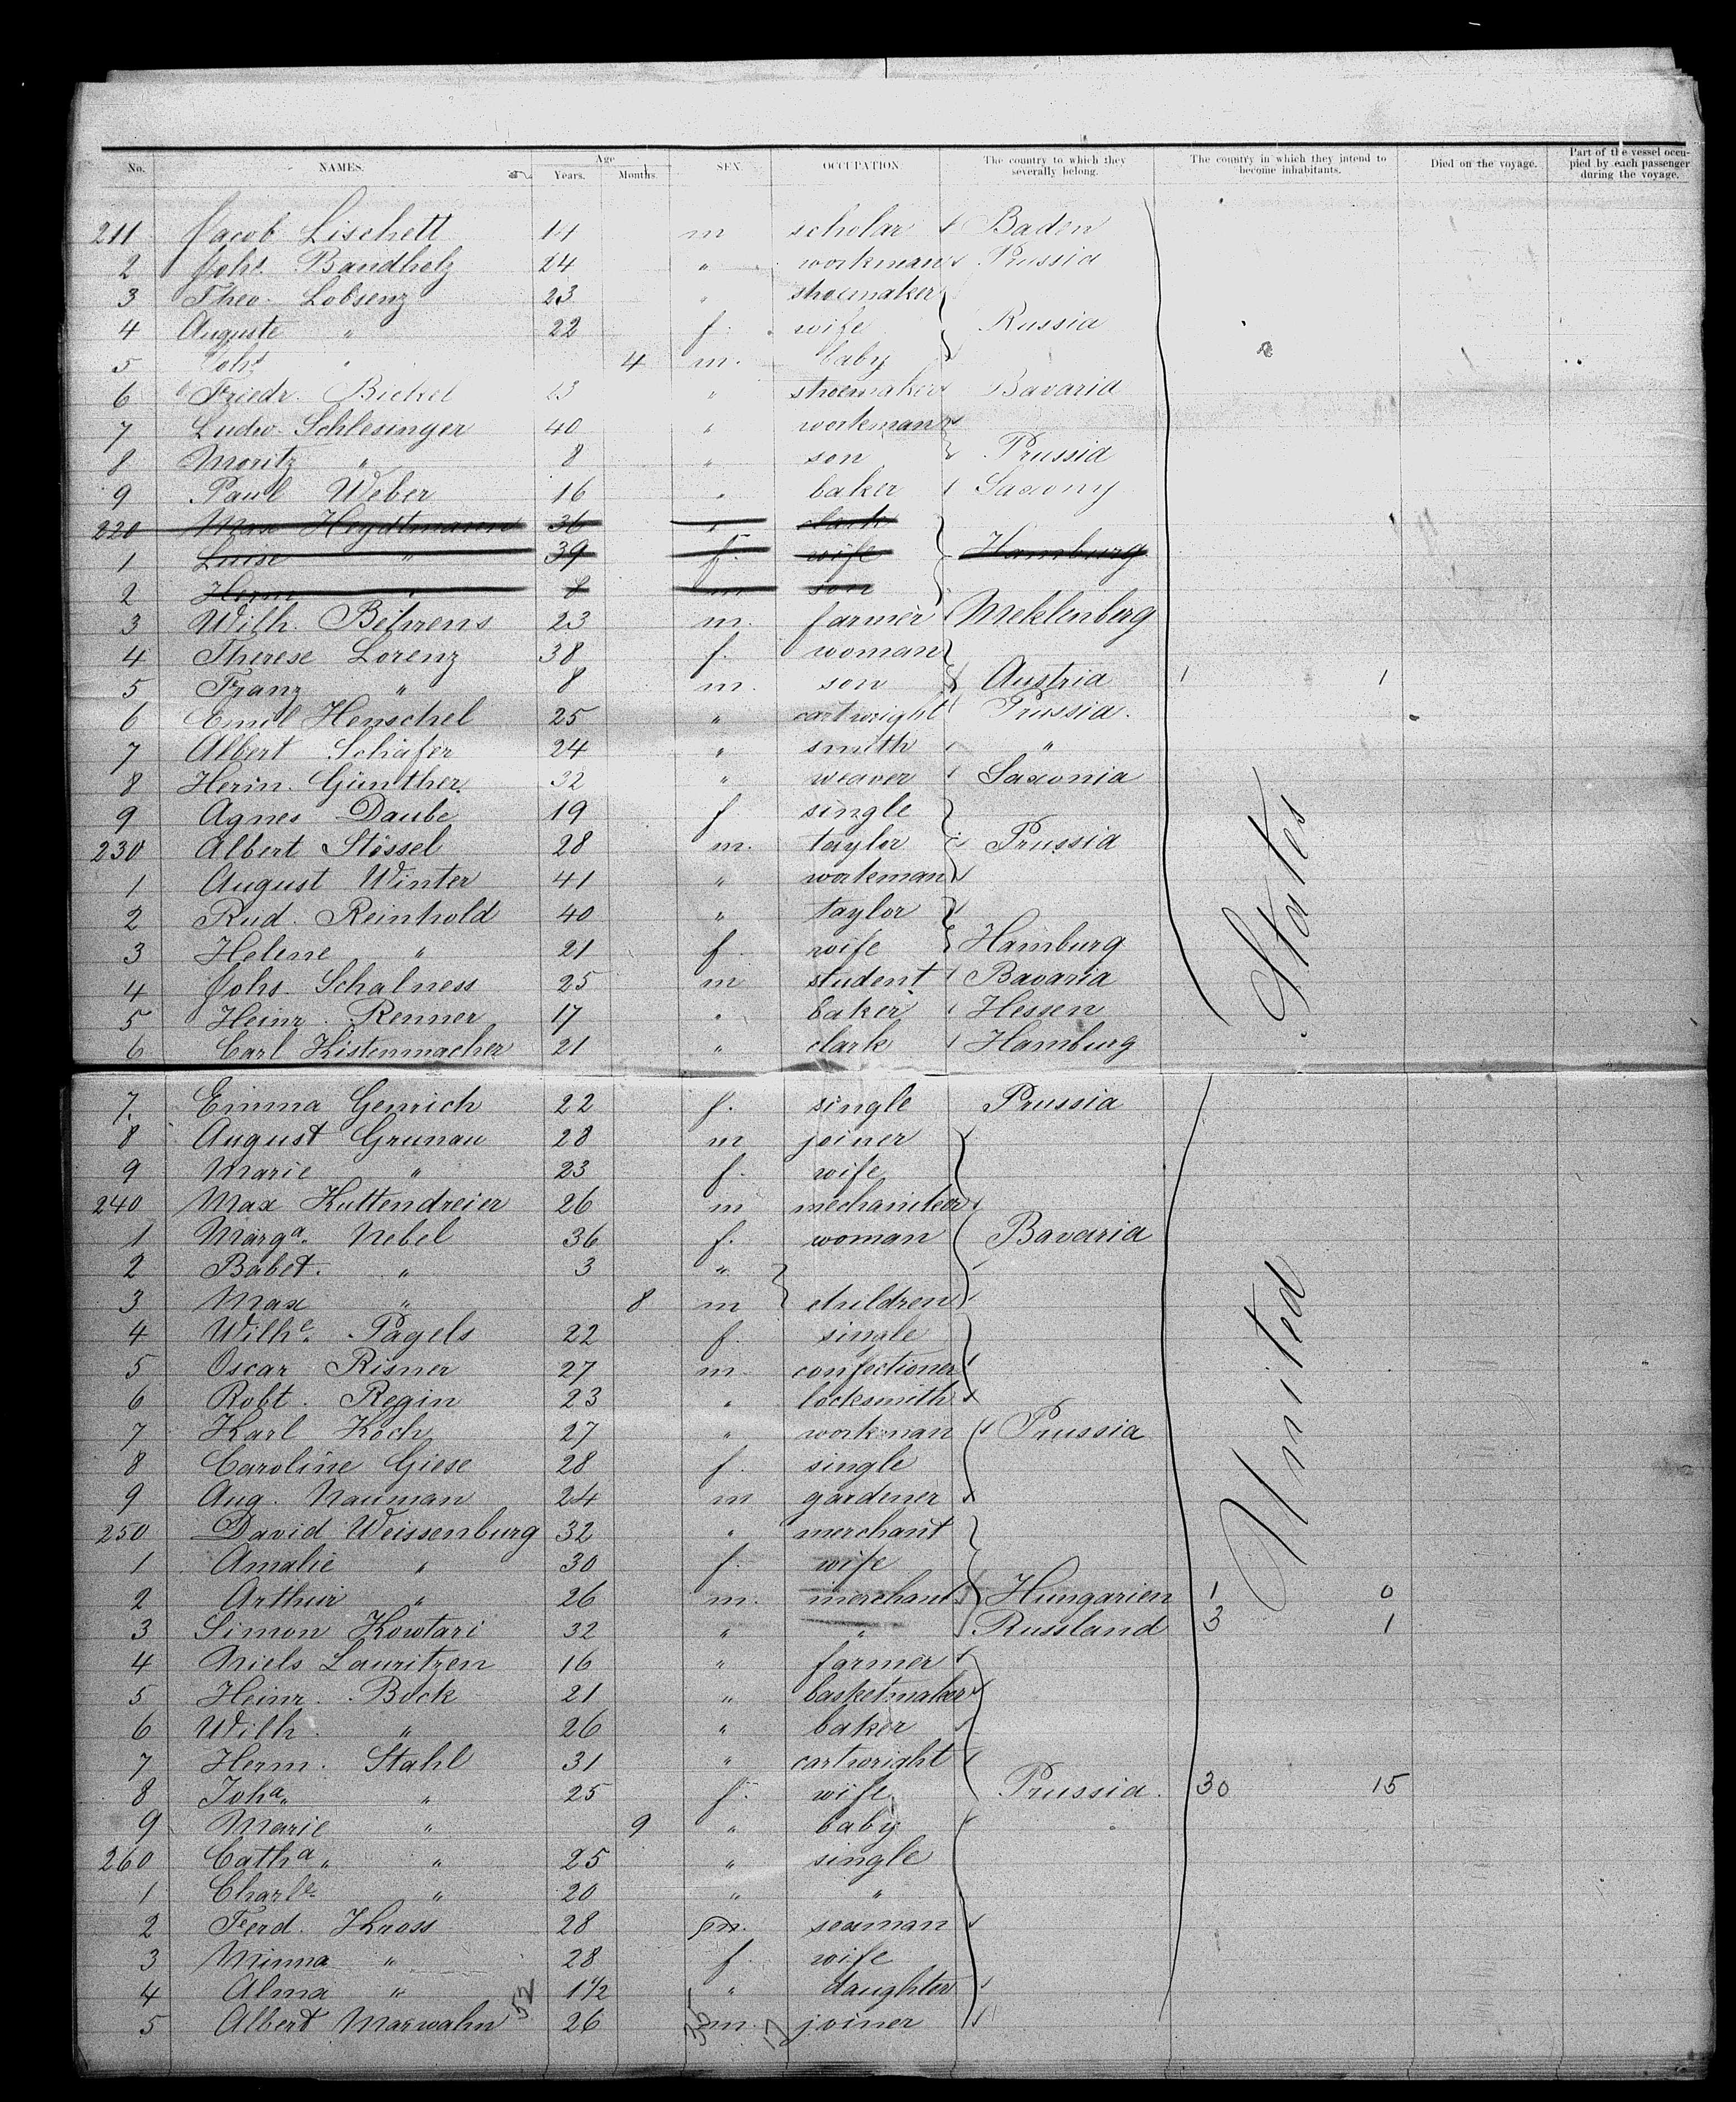 No. NAMES. Age Years. Months. SEX. OCCUPATION. The country to which they severally belong. The country in which they intend to become inhabitants. Died on the voyage. Part of the vessel occupied by each passenger during the voyage.
211 Jacob Lischett 14 m scholar Baden
2 Johs. Bandholz 24 " workman Prussia
3 Theo. Lobsenz 23 " shoemaker
4 Auguste " 22 f. wife Russia
5 Johs " 4 m. baby
6 Friedr. Bickel 23 " shoemaker Bavaria
7 Ludw. Schlesinger 40 " workman
8 Moritz " 8 " son Prussia
9 Paul Weber 16 " baker Saxony
220 Max Heydtmann 36 " clark
1 Luise " 39 f. wife Hamburg
2 Herm " 8 m son
3 Wilh. Behrens 23 m. farmer Meklenberg
4 Therese Lorenz 38 f. woman
5 Franz " 8 m. son Austria 1 1
6 Emil Henschel 25 " cartwright Prussia.
7 Albert Schäfer 24 " smith "
8 Herm. Günther 32 " weaver Saxonia
9 Agnes Daube 19 f single
230 Albert Stössel 28 m. taylor Prussia
1 August Winter 41 " workman
2 Rud. Reinhold 40 " taylor
3 Helene " 21 f. wife Hamburg
4 Johs. Schalness 25 m student Bavaria
5 Heinr. Renner 17 " baker Hessen
6 Carl Kistenmacher 21 " clark Hamburg
7. Emma Genrich 22 f. single Prussia
8 August Grunau 28 m joiner
9 Marie " 23 f. wife
240 Max Huttendreier 26 m mechaniker
1 Marga. Nebel 36 f. woman Bavaria
2 Babet. " 3 "
3 Max " 8 m children
4 Wilhe. Pagels 22 f. single
5 Oscar Risner 27 m. confectioner
6 Robt. Regin 23 " locksmith
7 Karl Koch 27 " workman Prussia
8 Caroline Giese 28 f. single
9 Aug. Nauman 24 m gardener
250 David Weissenburg 32 " merchant
1 Amalie " 30 f. wife
2 Arthur " 26 m. merchant Hungarien 1 0
3 Simon Kowtari 32 " " Russland 3 1
4 Niels Lauritzen 16 " farmer
5 Heinr. Bock 21 " basketmaker
6 Wilh. " 26 " baker
7 Herm. Stahl 31 " cartwright
8 Joha. " 25 f. wife Prussia. 30 15
9 Marie " 9 " baby
260 Catha. " 25 " single
1 Charle. " 20 " "
2 Ferd. Knass 28 m. seaman
3 Minna " 28 f wife
4 Alma " 1½ " daughter
5 Albert Marwahn 26 m. joiner
52 35 17
United States